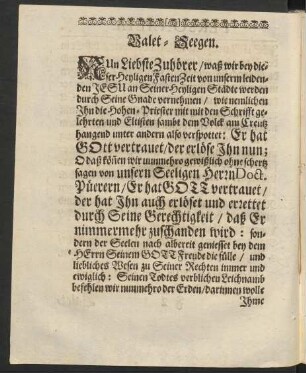 Valet-Seegen.
NUn Liebste Zuhörer/ waß wir bey die-
ser Heyligen Fasten Zeit von unserm leiden-
den JESU an Seiner Heyligen Städte werden
durch Seine Gnade vernehmen/ wie nemlichen
Ihn die Hohen-Priester mit mit den Schrifft ge-
lehrten und Eltisten sambt dem Volck am Creutz
hangend unter andern also verspottet: Er hat
GOtt vertrauet/ der erlöse Ihn nun;
O daß kőnen wir nunmehro gewißlich ohne schertz
sagen von unsern Seeligen Herꝛn Doct.
Pürern/ Er hat GOTT vertrauet/
der hat Ihn auch erlöset und errettet
durch Seine Gerechtigkeit/ daß Er
nimmermehr zuschanden wird: son-
dern der Seelen nach albereit geniesset bey dem
HErrn Seinem GOTT Freude die fülle/ und
liebliches Wesen zu Seiner Rechten immer und
ewiglich: Seinen Todtes verblichen Leichnamb
befehlen wir nunmehro der Erden/ darinnen wolle
Ihme